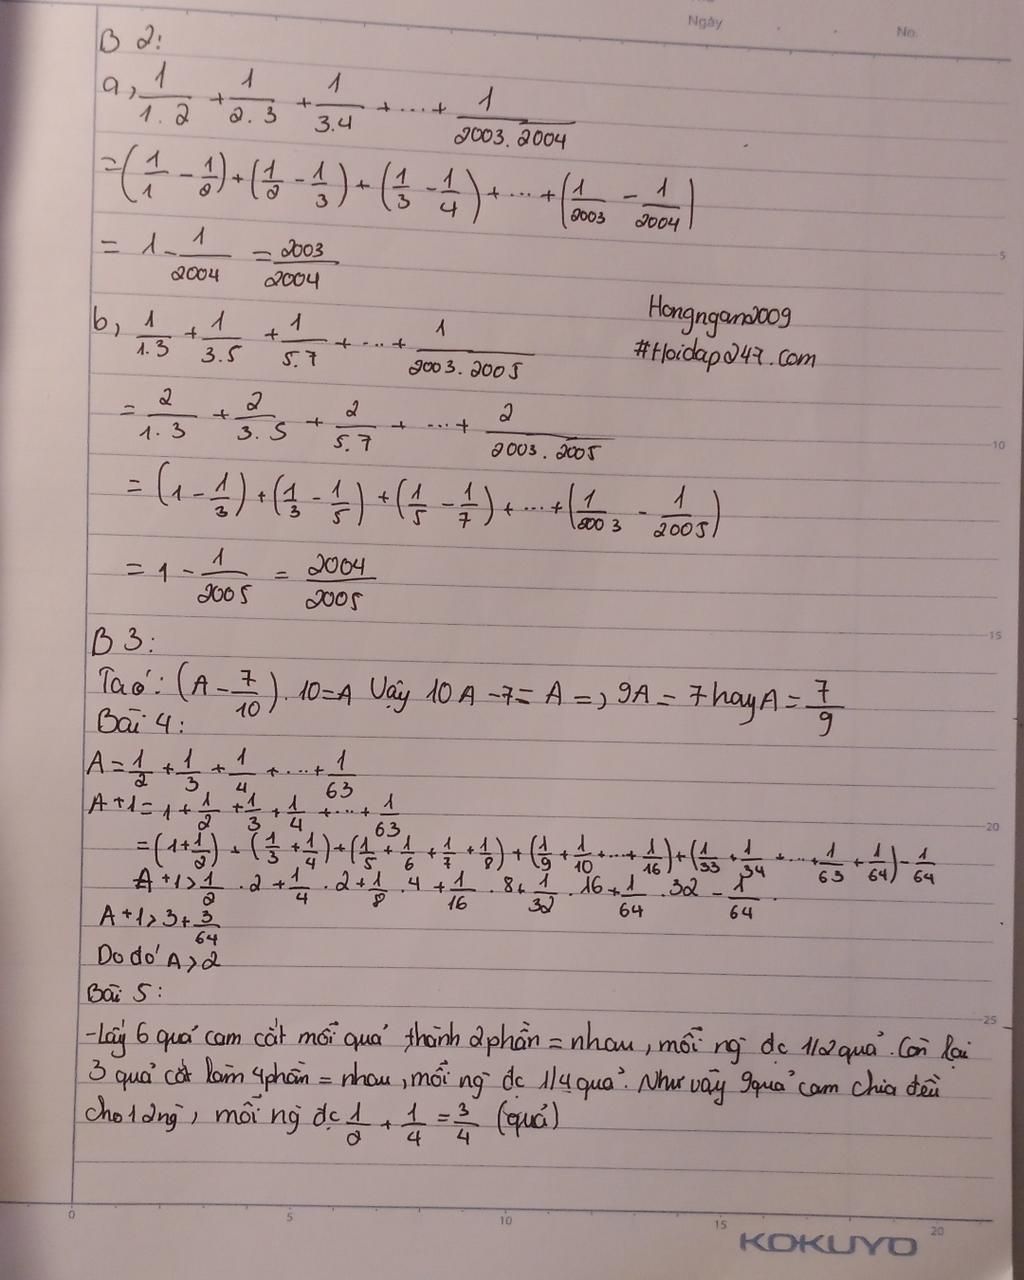 Ngày No.
B 2:
a, 1/1.2 + 1/2.3 + 1/3.4 + ... + 1/2003.2004
= (1/1 - 1/2) + (1/2 - 1/3) + (1/3 - 1/4) + ... + (1/2003 - 1/2004)
= 1 - 1/2004 = 2003/2004
b, 1/1.3 + 1/3.5 + 1/5.7 + ... + 1/2003.2005
Hongngan2009
#Hoidap247.com
= 2/1.3 + 2/3.5 + 2/5.7 + ... + 2/2003.2005
= (1 - 1/3) + (1/3 - 1/5) + (1/5 - 1/7) + ... + (1/2003 - 1/2005)
= 1 - 1/2005 = 2004/2005
B 3:
Ta có: (A - 7/10) . 10 = A Vậy 10A - 7 = A =, 9A = 7 hay A = 7/9
Bài 4:
A = 1/2 + 1/3 + 1/4 + ... + 1/63
A + 1 = 1 + 1/2 + 1/3 + 1/4 + ... + 1/63
= (1 + 1/2) + (1/3 + 1/4) + (1/5 + 1/6 + 1/7 + 1/8) + (1/9 + 1/10 + ... + 1/16) + (1/33 + 1/34 + ... + 1/63 + 1/64) - 1/64
A + 1 > 1/2 . 2 + 1/4 . 2 + 1/8 . 4 + 1/16 . 8 + 1/32 . 16 + 1/64 . 32 - 1/64
A + 1 > 3 + 3/64
Do đó A > 2
Bài 5:
- Lấy 6 quả cam cắt mỗi quả thành 2 phần = nhau, mỗi ng đc 1/2 quả. Còn lại
3 quả cắt làm 4 phần = nhau, mỗi ng đc 1/4 quả. Như vậy 9 quả cam chia đều
cho 12 ng, mỗi ng đc 1/2 + 1/4 = 3/4 (quả)
5
10
15
20
25
0 5 10 15 20
KOKUYO